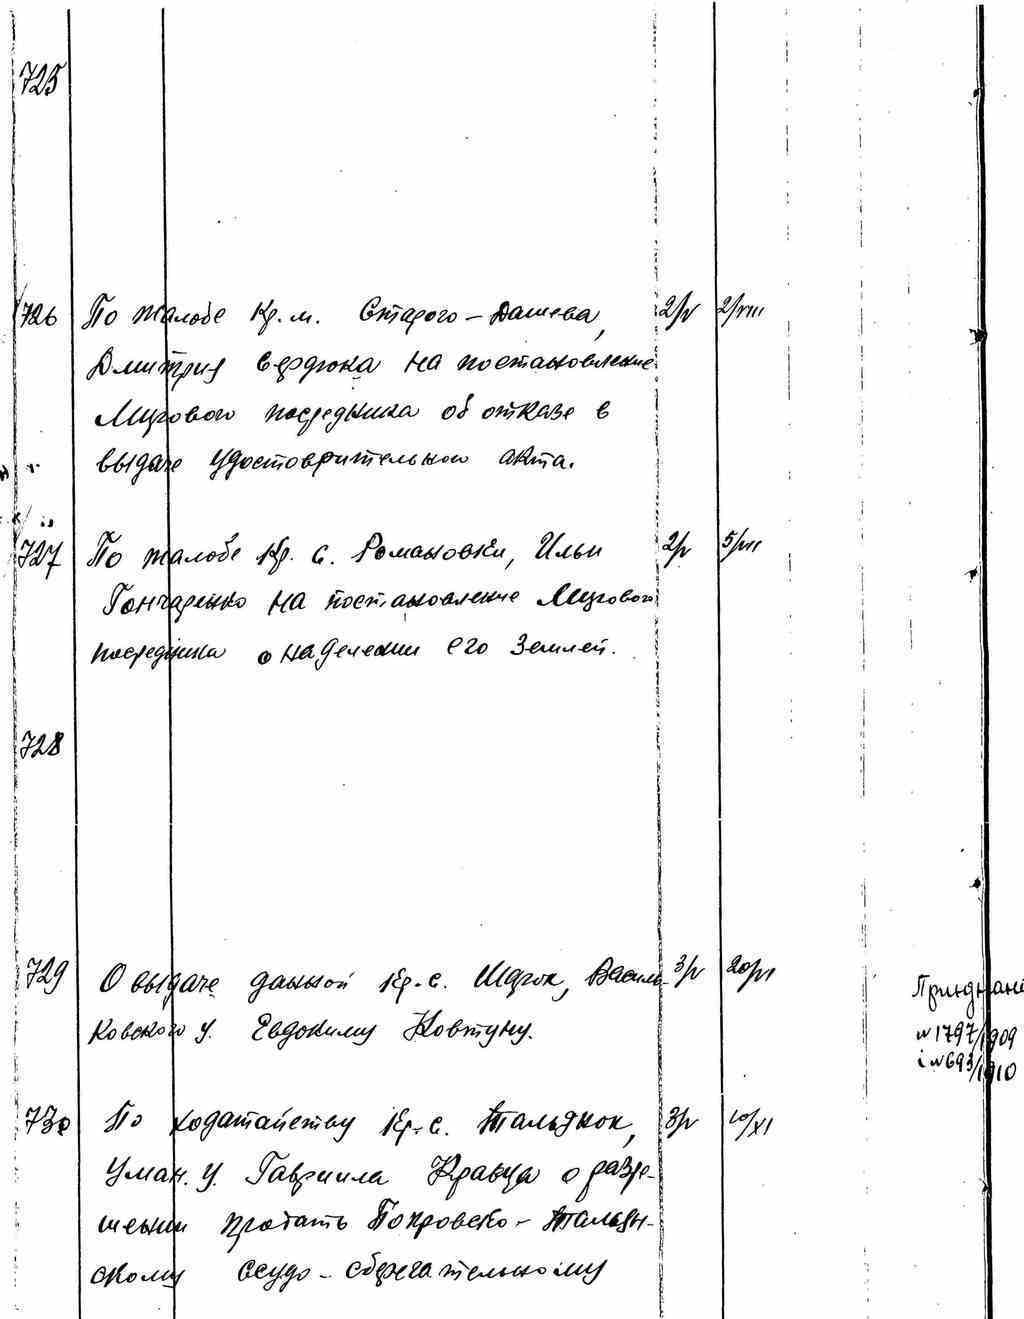 725
726 По жалобе кр. м. Старого-Дашева, 2/V 2/VIII
Дмитрия Сердюка на постановление
Мирового посредника об отказе в
выдаче удостоврительного акта.
727 По жалобе кр. с. Романовки, Ильи 2/V 5/VII
Гончаренко на постановление Мирового
посредника о наделении его землей.
728
729 О выдаче данной кр. с. Шарок, Василь- 3/V 20/VI
ковского у. Евдокиму Ковтуну.
Приєднані
№1797/1909
і №693/1910
730 По ходатайству кр. с. Тальянок, 3/V 10/XI
Уман. у. Гавриила Кравца о разре-
шении продать Покровско-Тальян-
скому ссудо-сберегательному